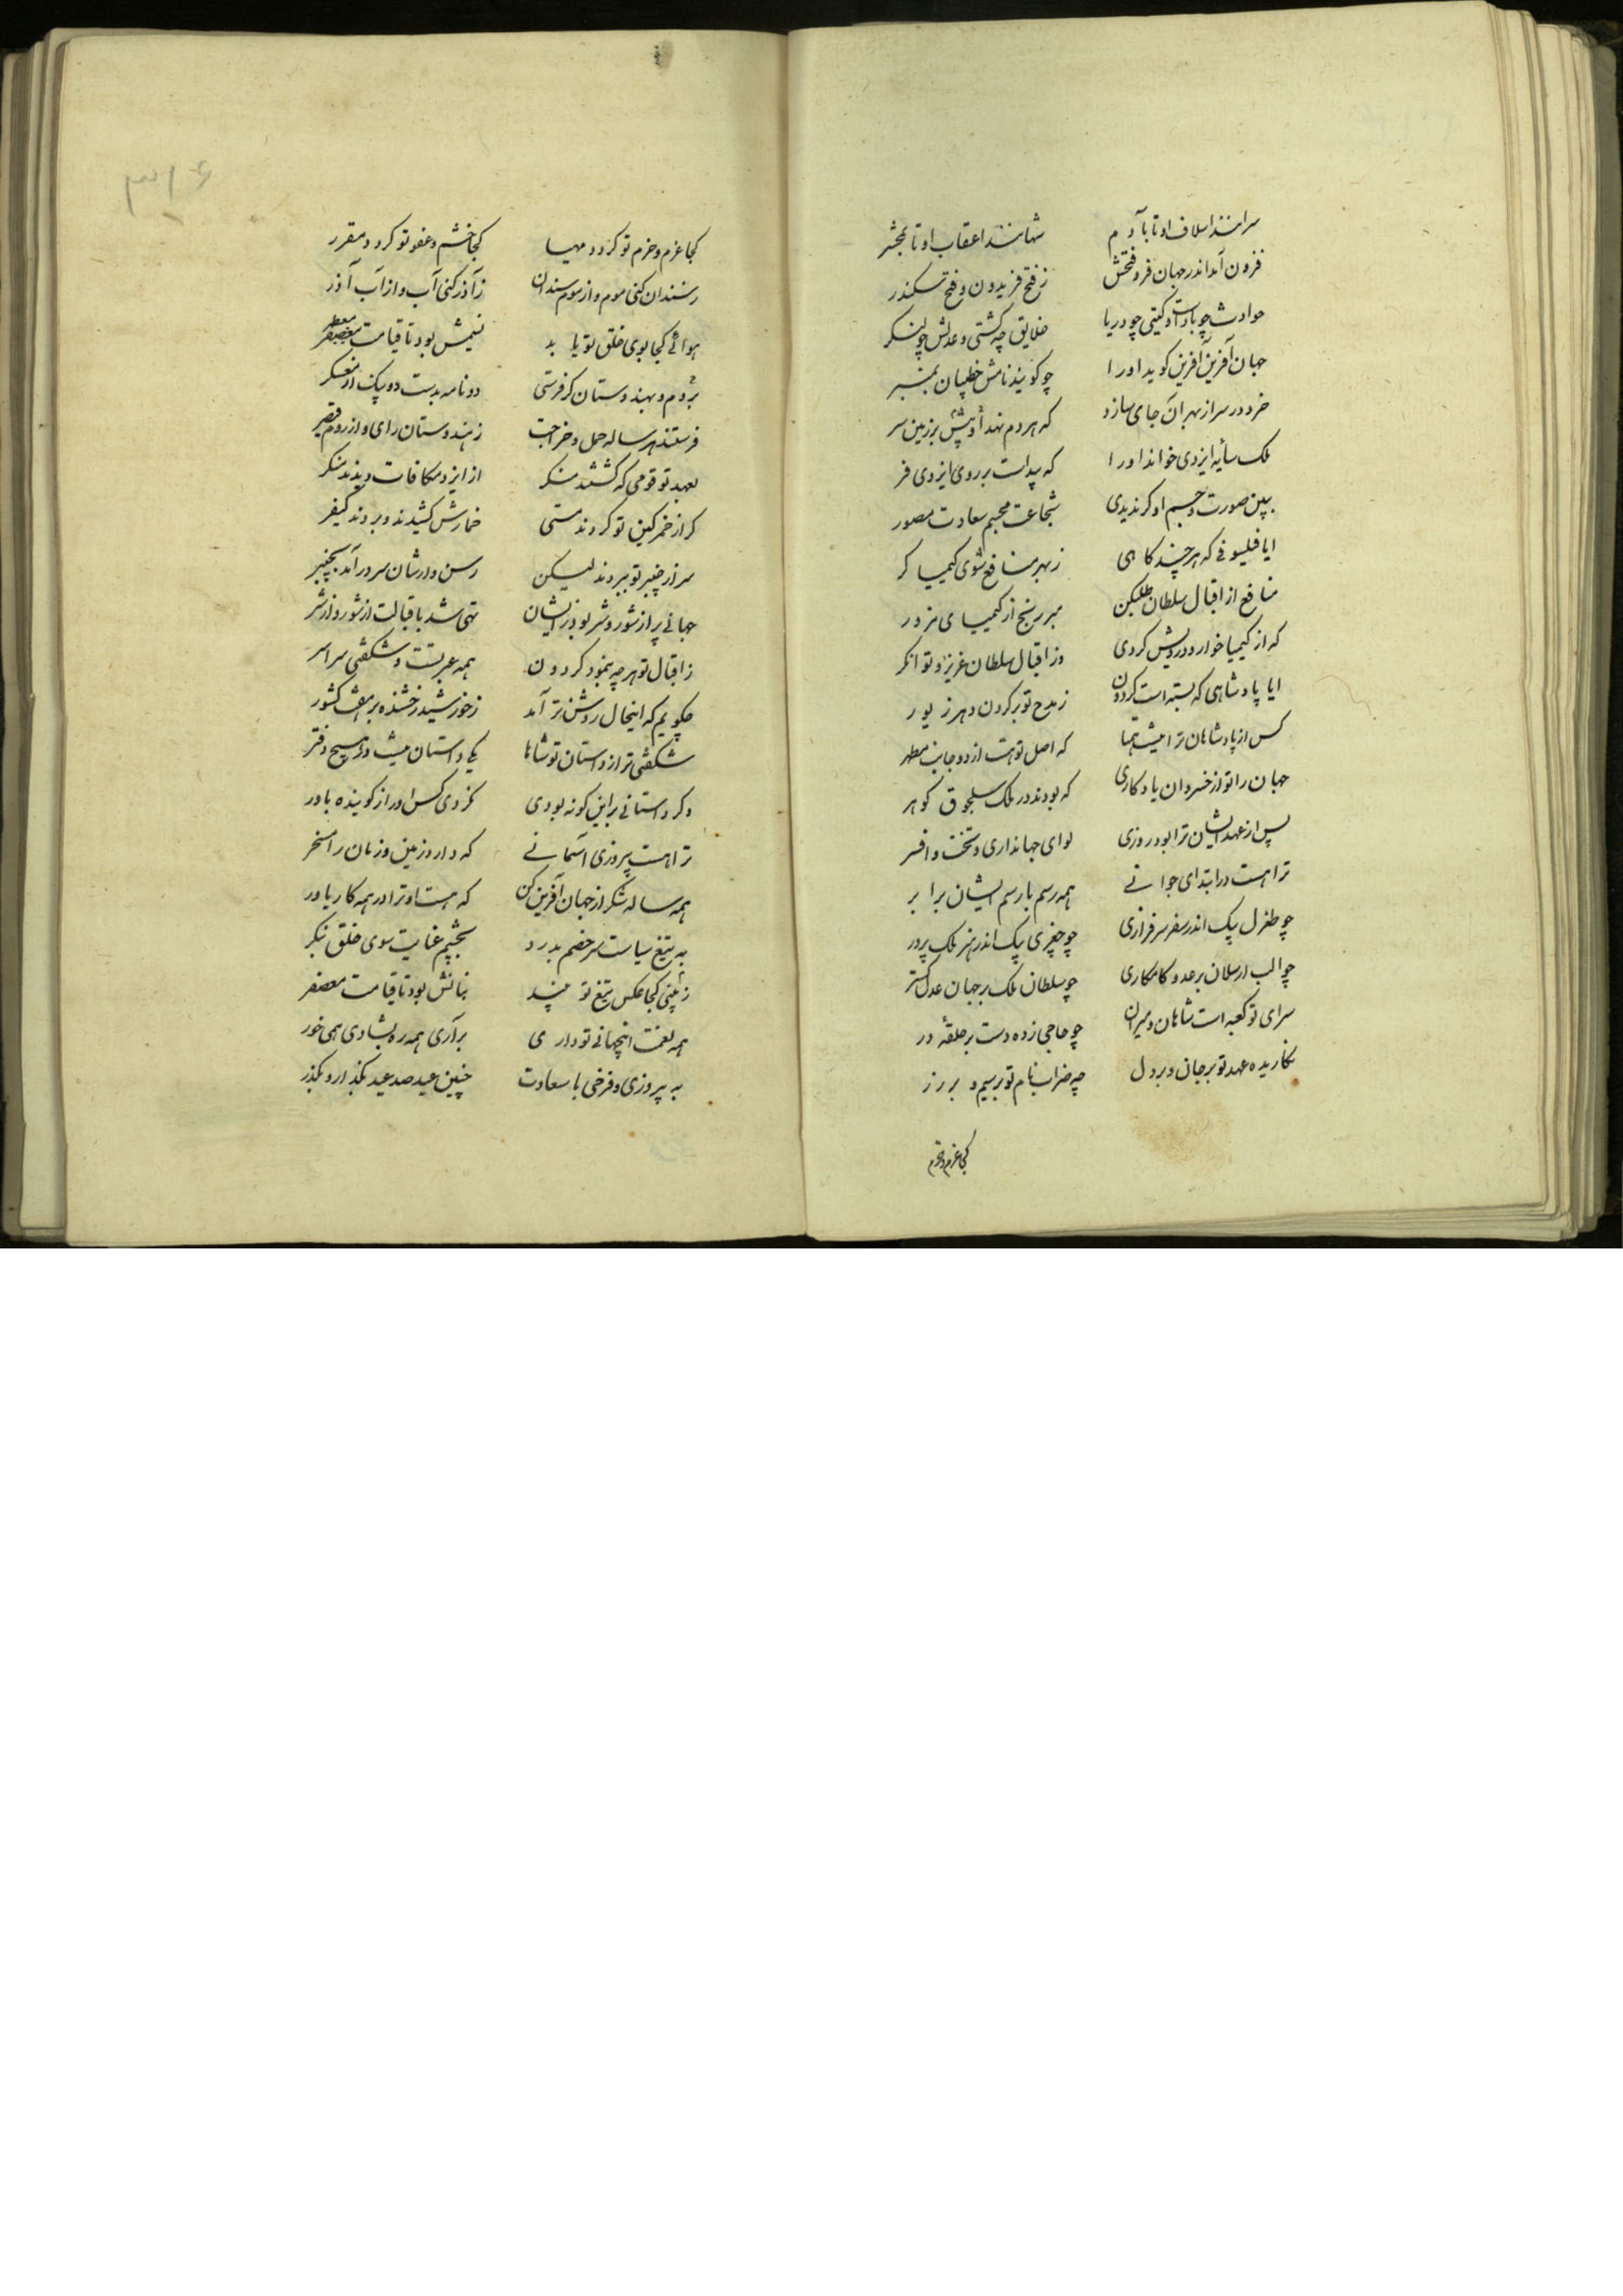 سرانند اسلاف او تا بآدم شهانند اعقاب او تا بمحشر
فزون آمد اندر جهان فر و فتحش ز فتح فریدون و فتح سکندر
حوادث چو بادست و کیتی چو دریا خلایق چه کشتی و عدلش چو لنکر
جهان آفرین آفرین کوید او را چو کویند نامش خطیبان بمنبر
خرد در سر از بهر آن جای سازد که هر دم نهد او به پیش بر زمین سر
ملک سایه ایزدی خواند او را که پیداست بر روی او ایزدی فر
ببین صورت و جسم او کر ندیدی شجاعت مجسم سعادت مصور
ایا فیلسوفی که هر چند کاهی ز بهر منافع شوی کیمیا کر
منافع از اقبال سلطان طلب کن مبر رنج از کیمیای مزور
که از کیمیا خوار و درویش کردی وز اقبال سلطان عزیز و توانکر
ایا پادشاهی که بسته است کردون ز مدح تو بر کردن دهر زیور
کس از پادشاهان ترا نیست همتا که اصل تو هست از دو جانب مطهر
جهان را تو از خسروان یادکاری که بودند در ملک سلجوق کوهر
پس از عهد ایشان ترا بود روزی لوای جهانداری و تخت و افسر
ترا هست در ابتدای جوانی همه رسم با رسم ایشان برابر
چو طغرل بیک اندر سفر سرفرازی چو چغری بیک اندر هنر ملک پرور
چو الب ارسلان بر عدو کامکاری چو سلطان ملک بر جهان عدل کستر
سرای تو کعبه است شاهان و میران چو حاجی زده دست بر حلقهٔ در
نکاریده عهد تو بر جان و بر دل چه ضراب نام تو بر سیم و بر زر
کجا عزم و حزم
۳۱۶
کجا عزم و حزم تو کردد مهیا کجا خشم و عفو تو کردد مقرر
ز سندان کنی موم و از موم سندان ز آذر کنی آب و از آب آذر
هوائی کجا بوی خلق تو یابد نسیمش بود تا قیامت معطر
بروم و بهندوستان کر فرستی دو نامه بدست دو پیک از معسکر
فرستند هر ساله حمل و خراجت ز هندوستان رای و از روم قیصر
بعهد تو قومی که کشتند منکر از ایزد مکافات دیدند منکر
کر از خمر کین تو کردند مستی خمارش کشیدند و بردند کیفر
سر از چنبر تو ببردند لیکن رسن وارشان سر در آمد بچنبر
جهانی پر از شور و شر بود زیشان تهی شد باقبالت از شور و از شر
ز اقبال تو هر چه بنمود کردون همه عبرتست و شکفتی سراسر
چکویم که اینحال روشن تر آمد ز خورشید رخشنده بر هفت کشور
شکفتی تر از داستان تو شاها یکی داستان نیست در هیچ دفتر
وکر داستانی براین کونه بودی نکردی کس او را ز کوینده باور
ترا هست پیروزی آسمانی که دارد زمین و زمان را مسخر
همه ساله شکر از جهان آفرین کن که هست او ترا در همه کار یاور
به تیغ سیاست سر خصم بدرد بچشم عنایت سوی خلق بنکر
زمینی کجا عکس تیغ تو بیند نباتش بود تا قیامت معصفر
همه نعمت اینجهانی تو داری برآری همه ره بشادی همی خور
به پیروزی و فرخی با سعادت چنین عید صد عید بکذار و بکذر